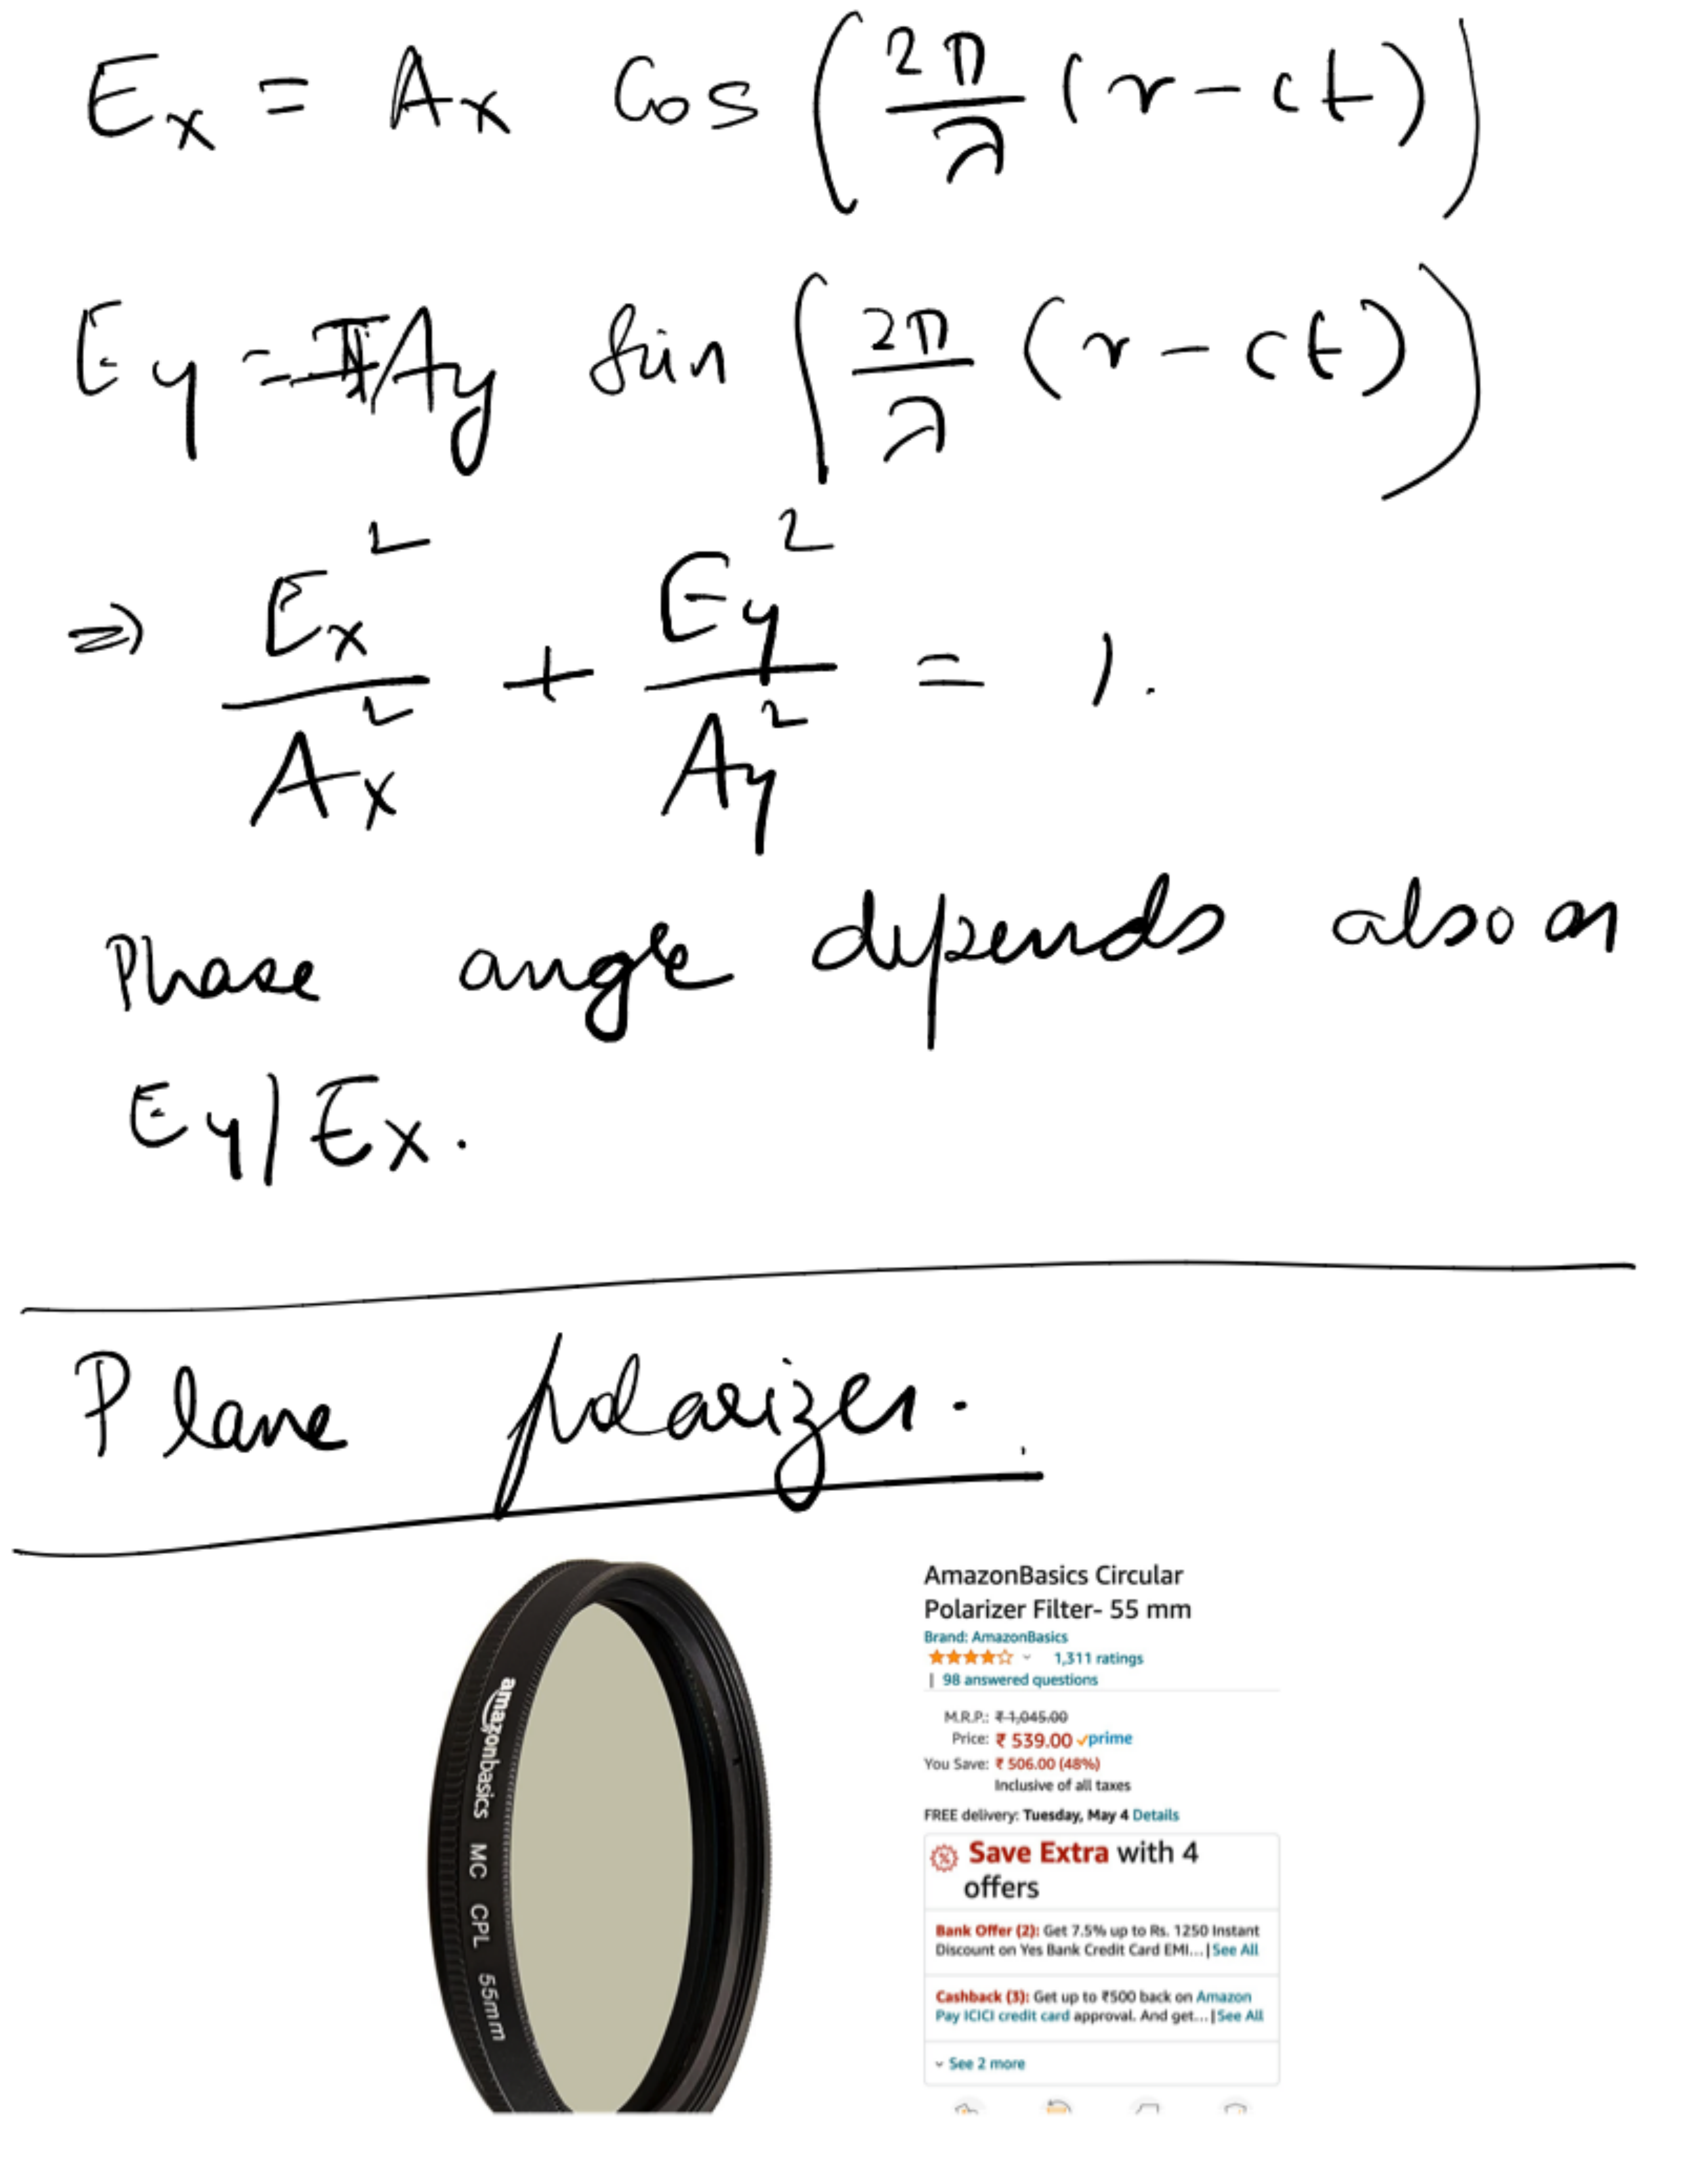 Ex = Ax Cos (2π/λ (r - ct))
Ey = Ay Sin (2π/λ (r - ct))
⇒ Ex²/Ax² + Ey²/Ay² = 1.
Phase angle depends also on
Ey/Ex.
Plane polarizer.
amazonbasics MC CPL 55mm
AmazonBasics Circular
Polarizer Filter- 55 mm
Brand: AmazonBasics
1,311 ratings
| 98 answered questions
M.R.P.: ₹ 1,045.00
Price: ₹ 539.00 prime
You Save: ₹ 506.00 (48%)
Inclusive of all taxes
FREE delivery: Tuesday, May 4 Details
Save Extra with 4
offers
Bank Offer (2): Get 7.5% up to Rs. 1250 Instant
Discount on Yes Bank Credit Card EMI... | See All
Cashback (3): Get up to ₹500 back on Amazon
Pay ICICI credit card approval. And get... | See All
See 2 more